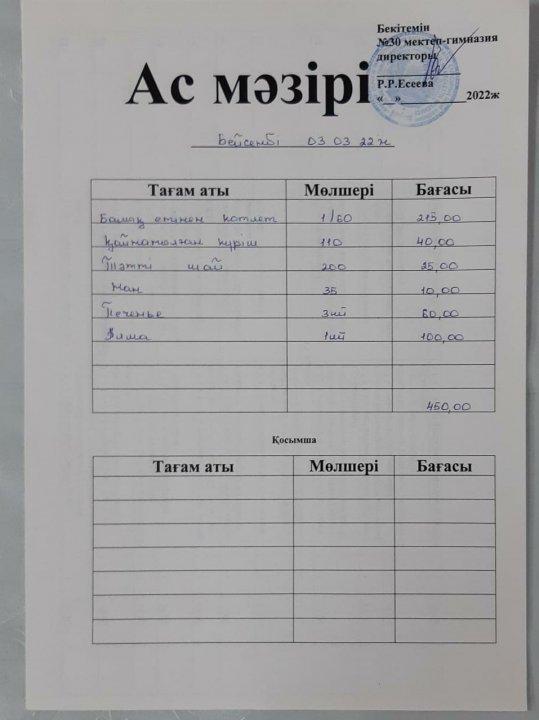 Бекітемін
№30 мектеп-гимназия
директоры
Р.Р.Есеева
«__»____________2022ж
Ас мәзірі
Бейсенбі 03 03 22ж
Тағам аты Мөлшері Бағасы
Балық етінен котлет 1/60 215,00
Қайнатылған күріш 110 40,00
Тәтті шай 200 25,00
Нан 35 10,00
Печенье 3 60,00
Алма 1 100,00
450,00
Қосымша
Тағам аты Мөлшері Бағасы